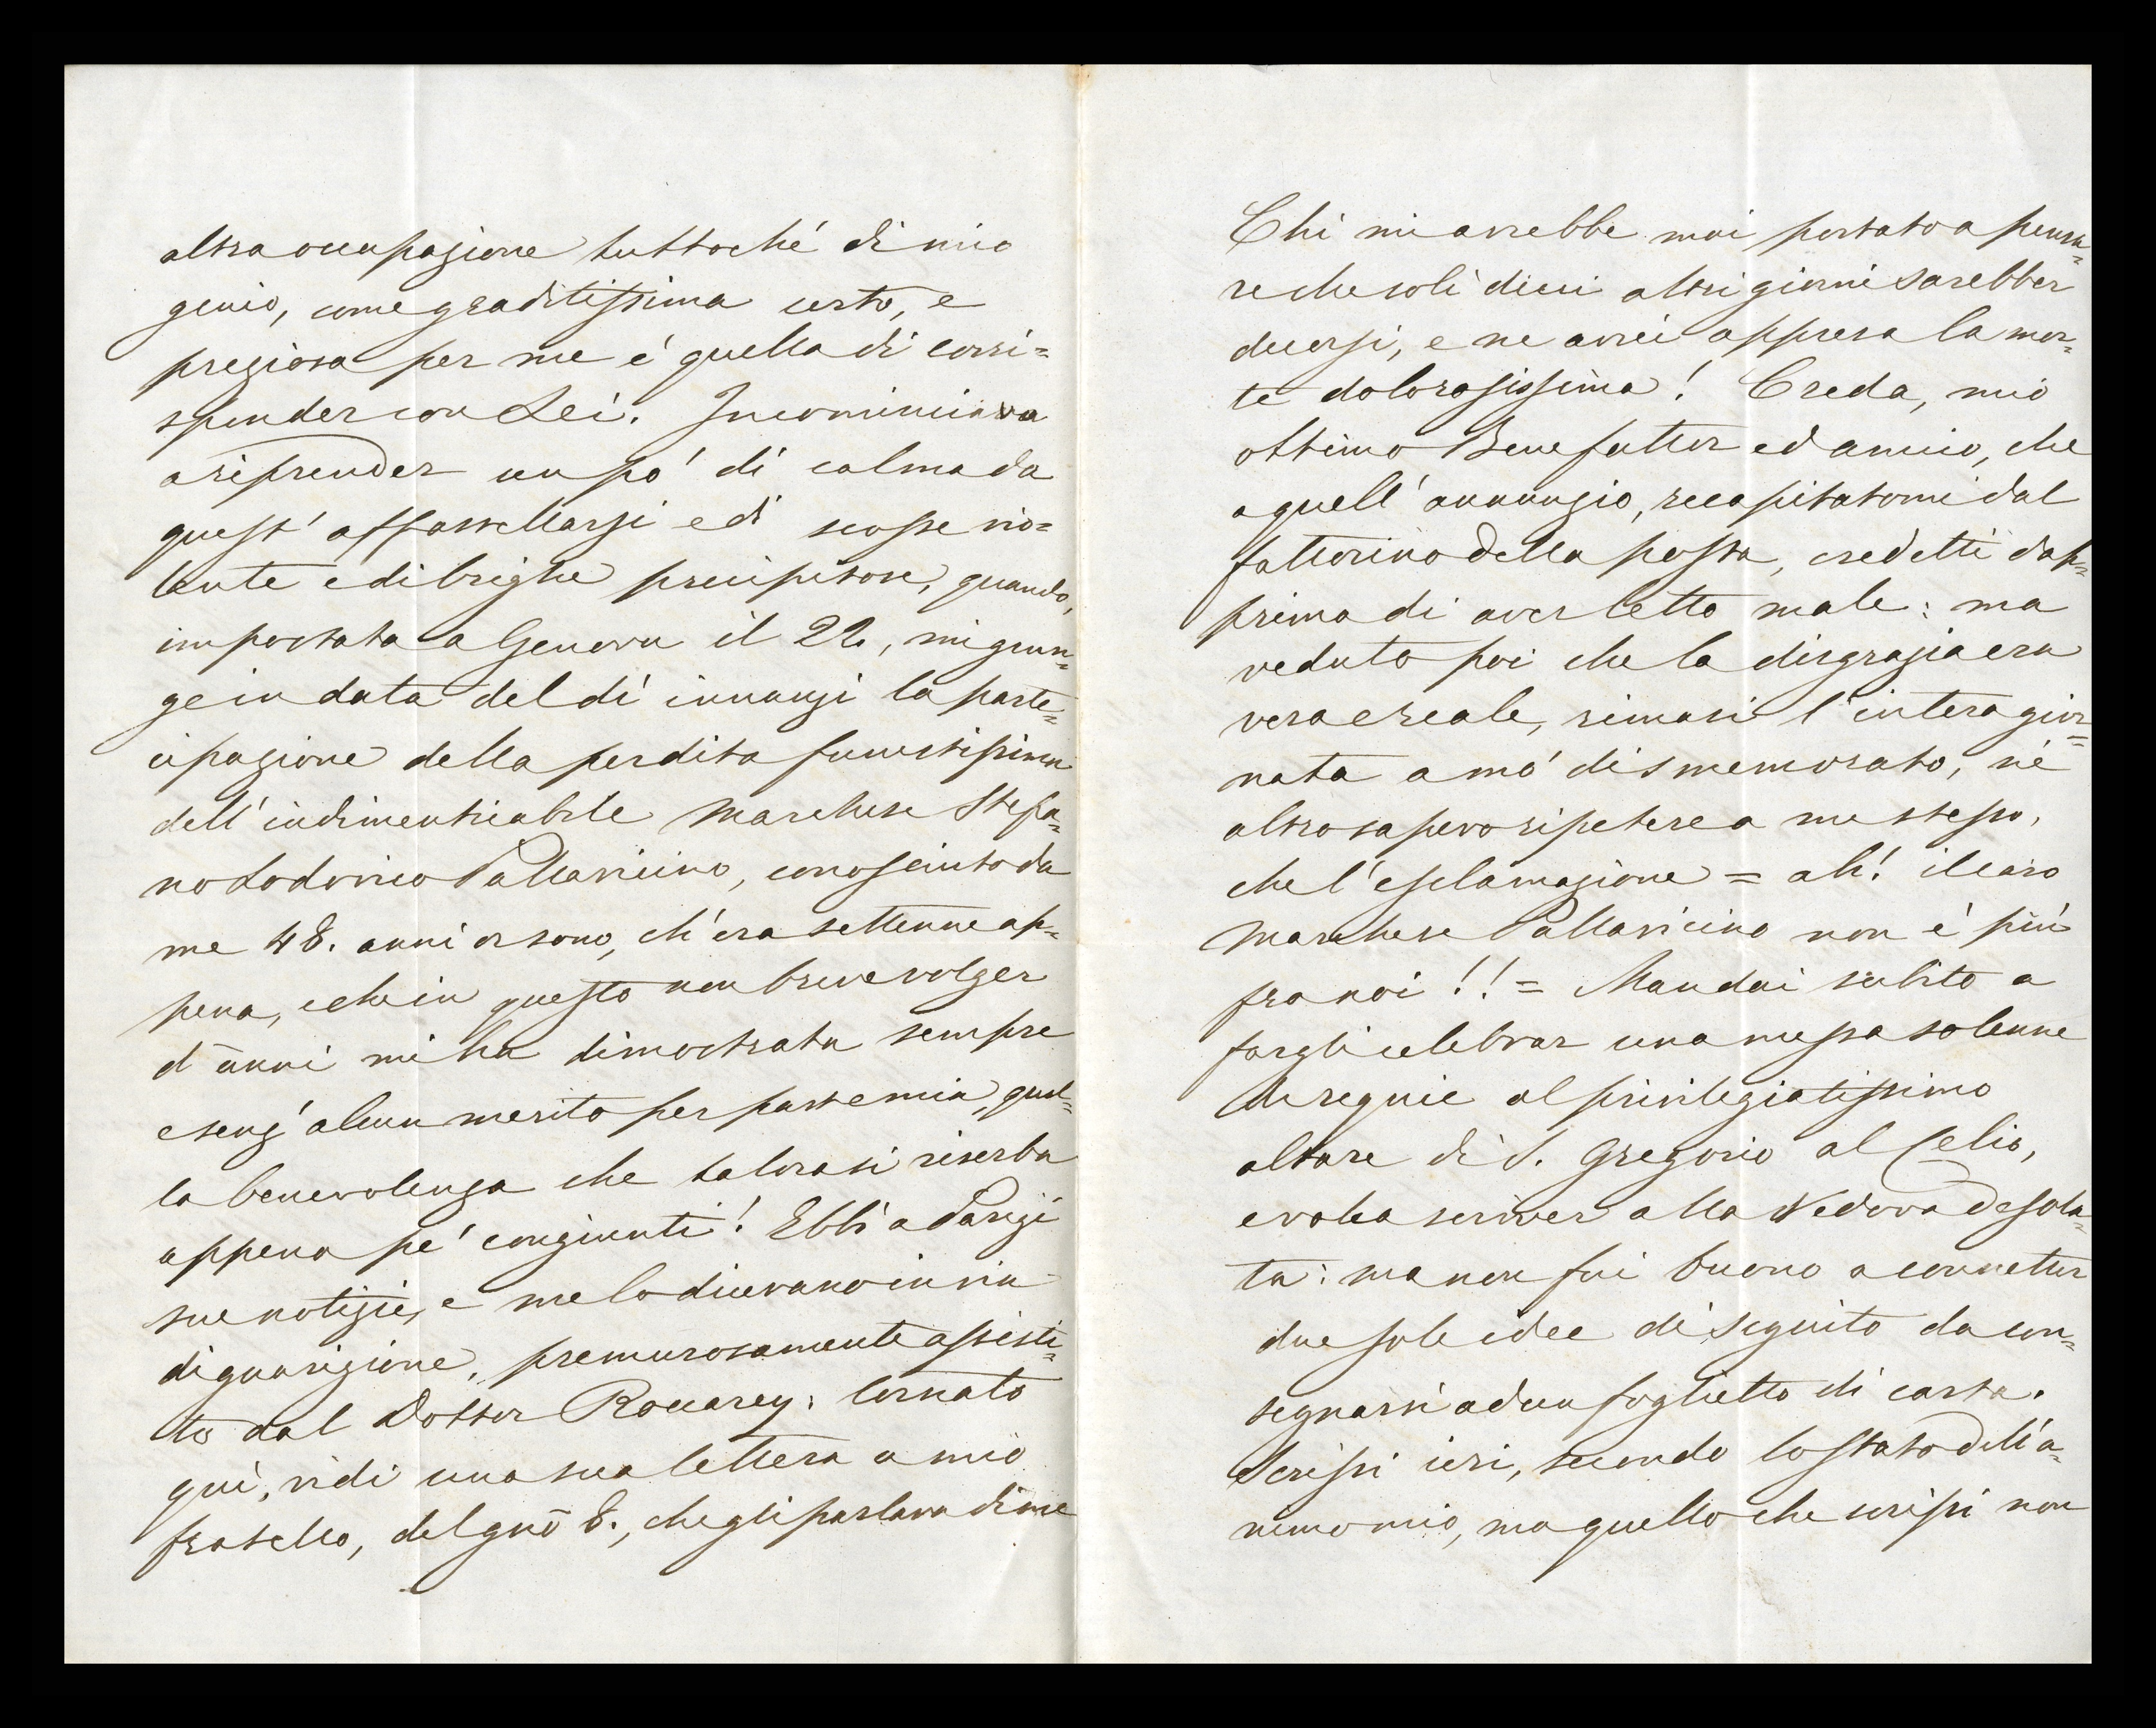 altra occupazione tuttoché di mio
genio, come graditissima certo, e
preziosa per me è quella di corri=
sponder con Lei. Incominciava
a riprender un po' di calma da
quest' affastellarsi e di scosse vio=
lente e di brighe precipitose, quando,
impostata a Genova il 22, mi giun=
ge in data del dì innanzi la parte=
cipazione della perdita funestissima
dell' indimenticabile Marchese Stefa=
no Lodovico Pallavicino, conosciuto da
me 48. anni or sono, ch' era settenne ap=
pena, e che in questo non breve volger
d' anni mi ha dimostrata sempre
e senz' alcun merito per parte mia, quel=
la benevolenza che talora si riserba
appena pe' congiunti! Ebbi a Parigi
sue notizie, e me lo dicevano in via
di guarigione, premurosamente assisti=
to dal Dottor : tornato
quì, vidi una sua lettera a mio
fratello, del gno 8., che gli parlava di me
Chi mi avrebbe mai portato a pensa=
re che soli dieci altri giorni sarebber
decorsi, e ne avrei appresa la mor=
te dolorosissima! Creda, mio
ottimo Benefattor ed amico, che
a quell' annunzio, recapitatomi dal
fattorino della posta, credetti dap=
prima di aver letto male: ma
veduto poi che la disgrazia era
vera e reale, rimasi l' intera gior=
nata a mo' di smemorato, nè
altro sapevo ripetere a me stesso,
che l' esclamazione = ah! il caro
Marchese Pallavicino non è più
fra noi!! = Mandai subito a
fargli celebrar una messa solenne
de requie al privilegiatissimo
altare di S. Gregorio al Celio,
e volea scriver alla Vedova desola=
ta: ma non fui buono a connetter
due sole idee di seguito da con=
segnarsi ad un foglietto di carta.
Scrissi ieri, secondo lo stato dell' a=
nimo mio, ma quello che scrissi non